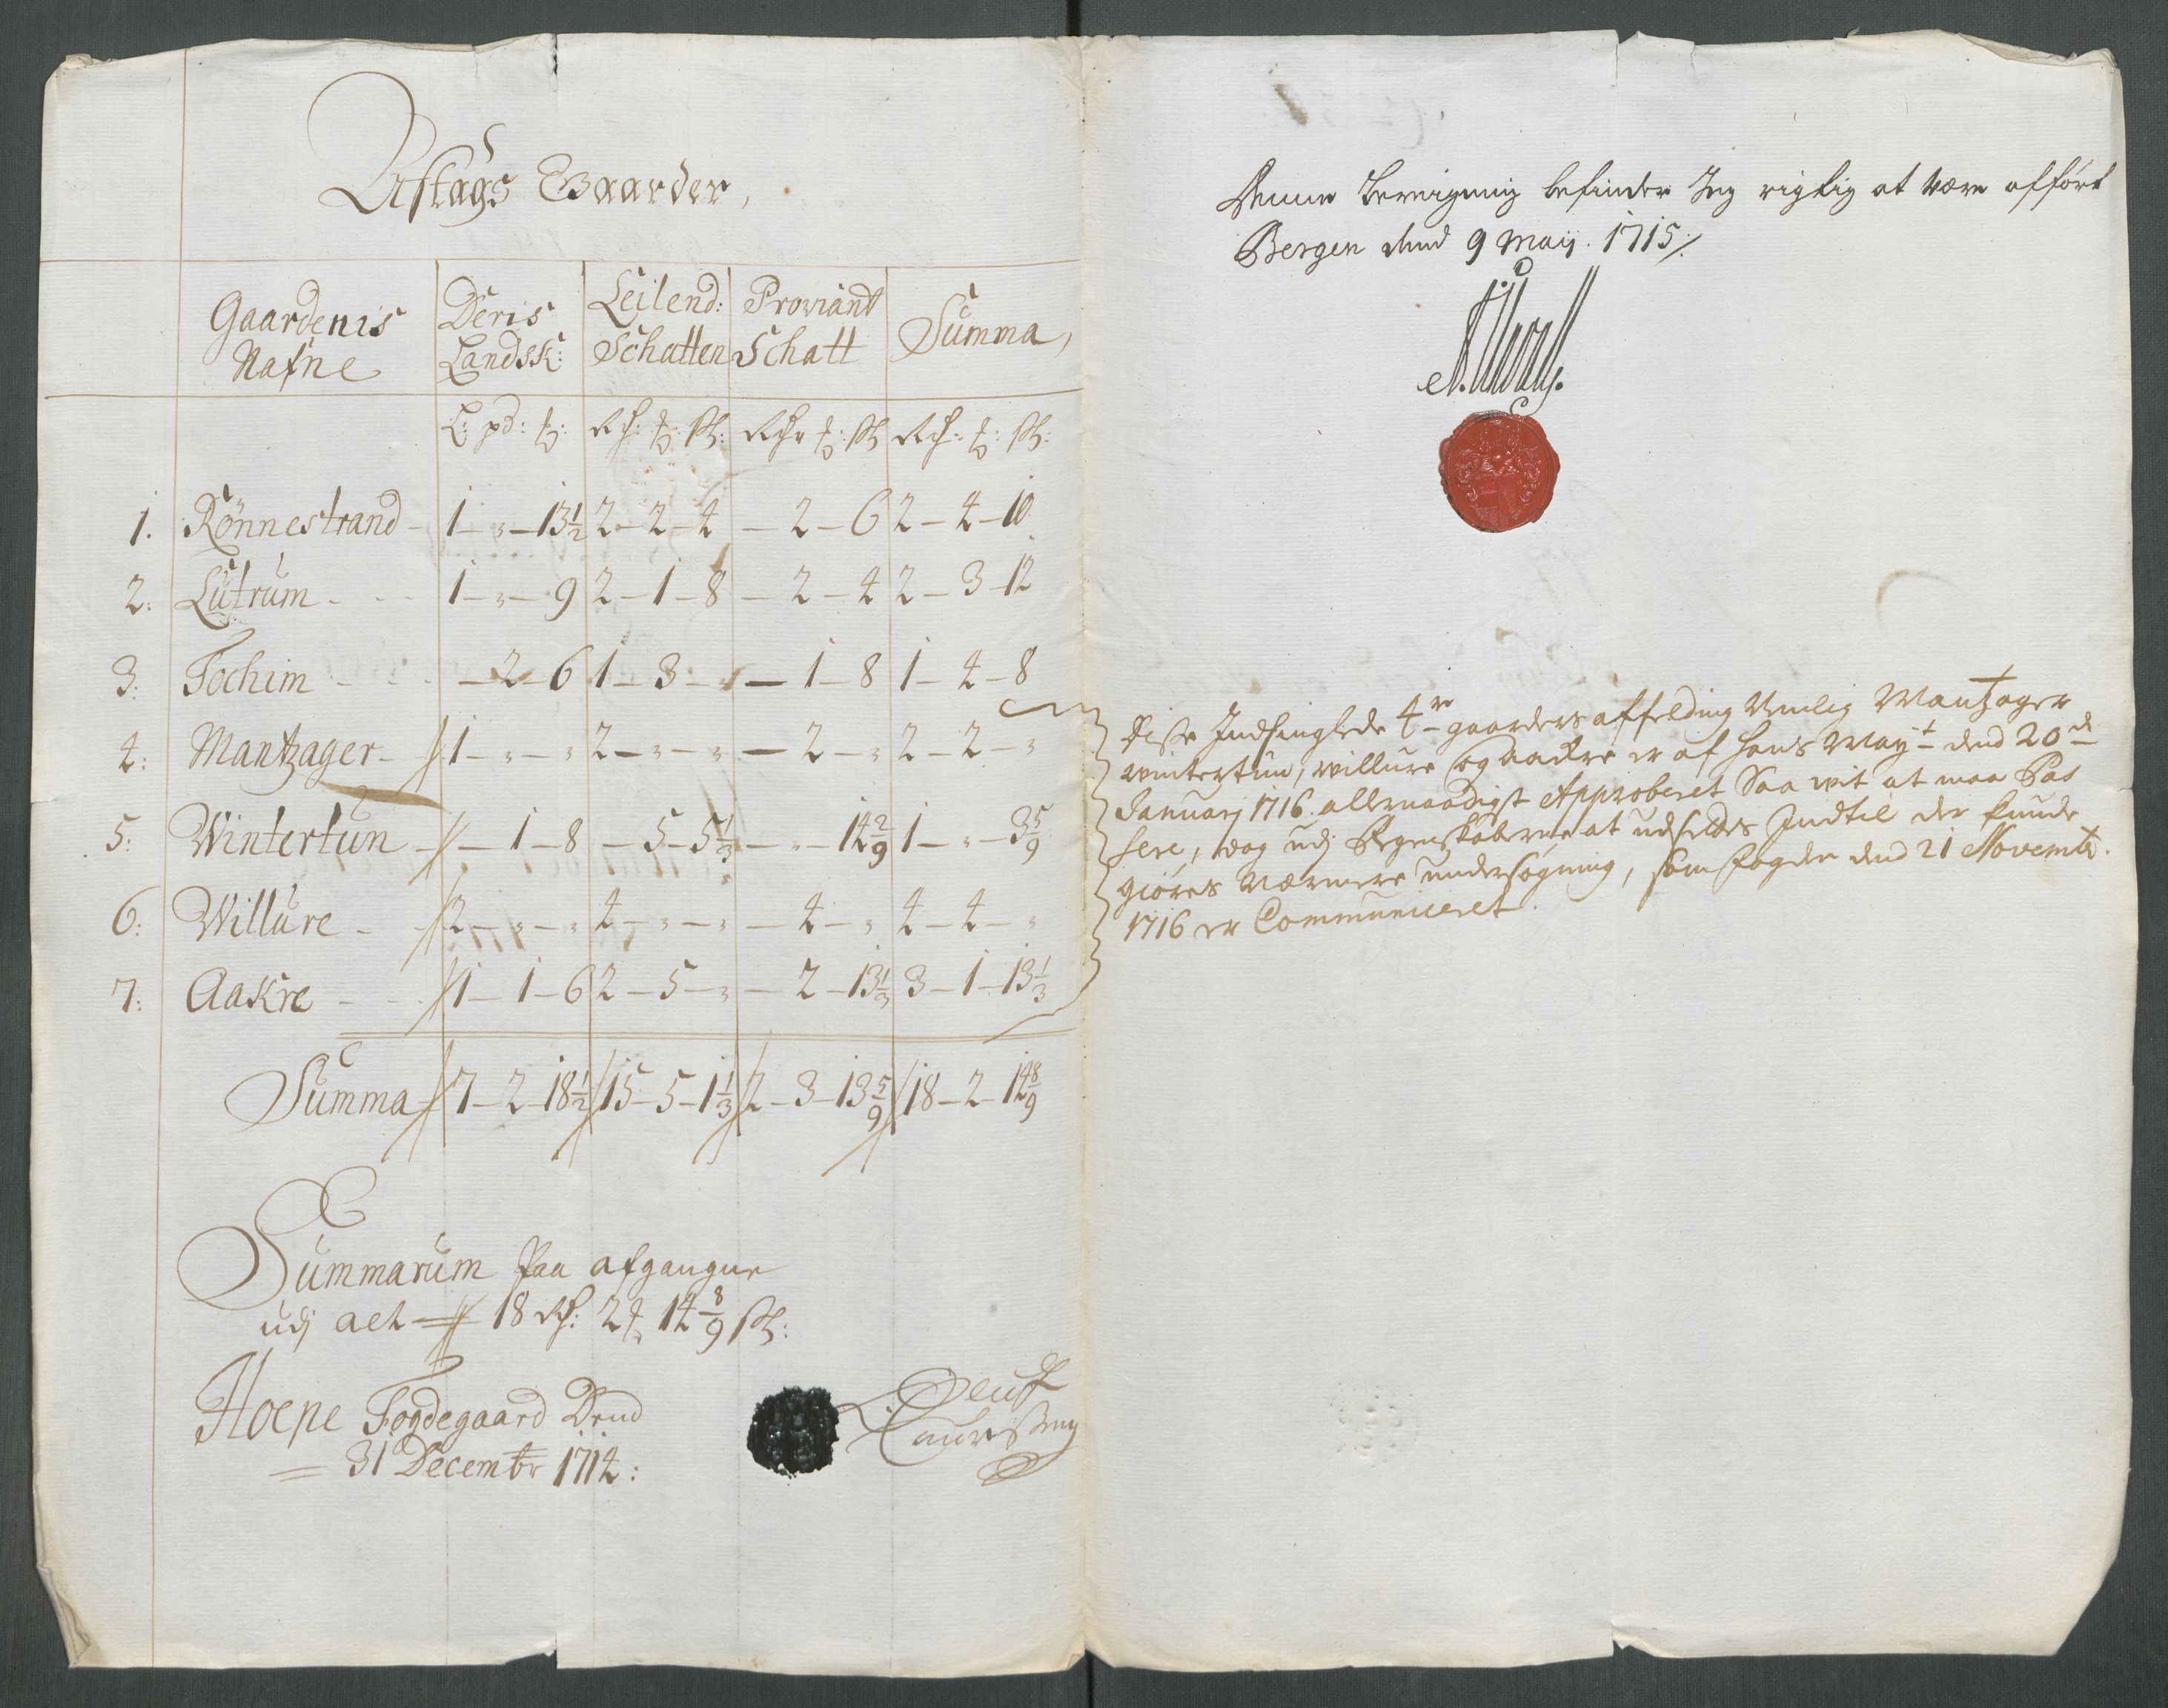 Aftags Gaarder,
Gaardenis Nafne | Deris Landsk: | Leilend: Schatten | Proviant Schatt | Summa,
L: pd: ℔: | Rdr: ℔: ß: | Rdr: ℔: ß | Rdr: ℔: ß:
1. Rönnestrand - 1 - " - 13½ | 2 - 2 - 4 | - 2 - 6 | 2 - 4 - 10
2: Lutrum - - - 1 - " - 9 | 2 - 1 - 8 | - 2 - 4 | 2 - 3 - 12
3: Tochim - - - - 2 - 6 | 1 - 3 - " | - 1 - 8 | 1 - 4 - 8
4: Mantzager - 1 - " - " | 2 - " - " | - 2 - " | 2 - 2 - "
5: Wintertun - - 1 - 8 | - 5 - 5⅓ | - " - 14 2/9 | 1 - " - 3 5/9
6: Willure - - 2 - " - " | 4 - " - " | - 4 - " | 4 - 4 - "
7: Aakre - - 1 - 1 - 6 | 2 - 5 - " | - 2 - 13⅓ | 3 - 1 - 13⅓
Summa 7 - 2 - 18½ | 15 - 5 - 1⅓ | 2 - 3 - 13 5/9 | 18 - 2 - 14 8/9
Summarum Paa afgangne
udj alt 18 Rdr: 2 ℔ 14 8/9 ß:
Hoepe Fogdegaard Dend
31 Decembr 1714:
Lauritzen
Denne Beregning befinder Jeg rigtig at være afført
Bergen dend 9 Maij. 1715 /.
Disse Indhinglede 4re gaarders affelding Nemlig Mantzager
Wintertun, Willure og Aackre er af Hans Mayt dend 20de
Januarj 1716 allernaadigst Approberet Saa vit at maa Pas
sere, dog udj Regenskaberne at udføldes Indtil der kunde
giøres Nærmere undersøgning, som fogden dend 21 Novembr.
1716 er Communiceret.